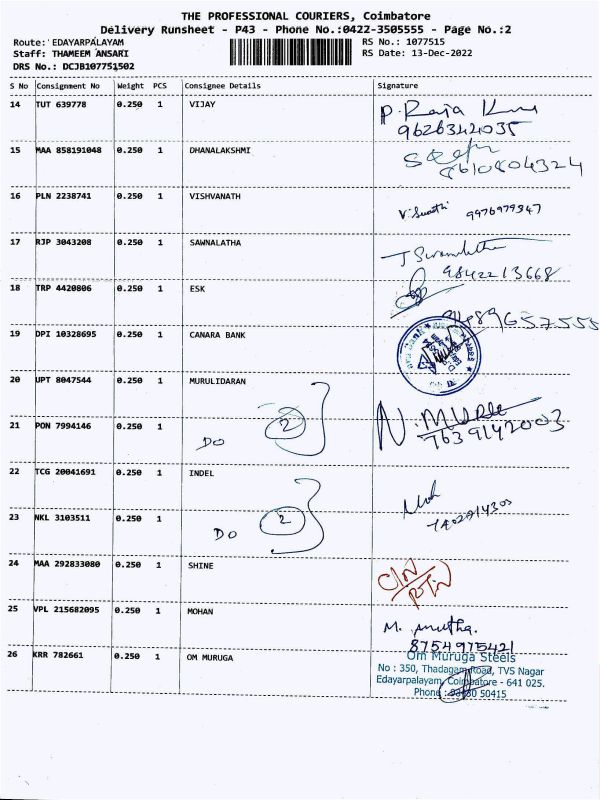 THE PROFESSIONAL COURIERS, Coimbatore
Delivery Runsheet - P43 - Phone No.:0422-3505555 - Page No.:2
Route: EDAYARPALAYAM RS No.: 1077515
Staff: THAMEEM ANSARI RS Date: 13-Dec-2022
DRS No.: DCJB107751502
S No Consignment No Weight PCS Consignee Details Signature
14 TUT 639778 0.250 1 VIJAY P. Raja
9626342035
15 MAA 858191048 0.250 1 DHANALAKSHMI
8610804324
16 PLN 2238741 0.250 1 VISHVANATH
9976979347
17 RJP 3043208 0.250 1 SAWNALATHA
9842213668
18 TRP 4420806 0.250 1 ESK
9489657555
19 DPI 10328695 0.250 1 CANARA BANK
20 UPT 8047544 0.250 1 MURULIDARAN
21 PON 7994146 0.250 1 DO 2 N. MURALI
7639142003
22 TCG 20041691 0.250 1 INDEL
23 NKL 3103511 0.250 1 DO 2
24 MAA 292833080 0.250 1 SHINE C/N
RTN
25 VPL 215682095 0.250 1 MOHAN M. Anutha.
8754975421
26 KRR 782661 0.250 1 OM MURUGA Om Muruga Steels
No : 350, Thadagam Road, TVS Nagar
Edayarpalayam, Coimbatore - 641 025.
Phone : 50415